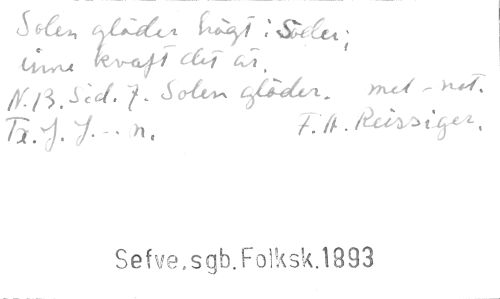 Solen glöder högt i Söder;
inne kvaft det är.
N.B. Sid. 7. Solen glöder. mel-not.
Tx. J. J...n. F.A. Reissiger.
Sefve.sgb.Folksk.1893